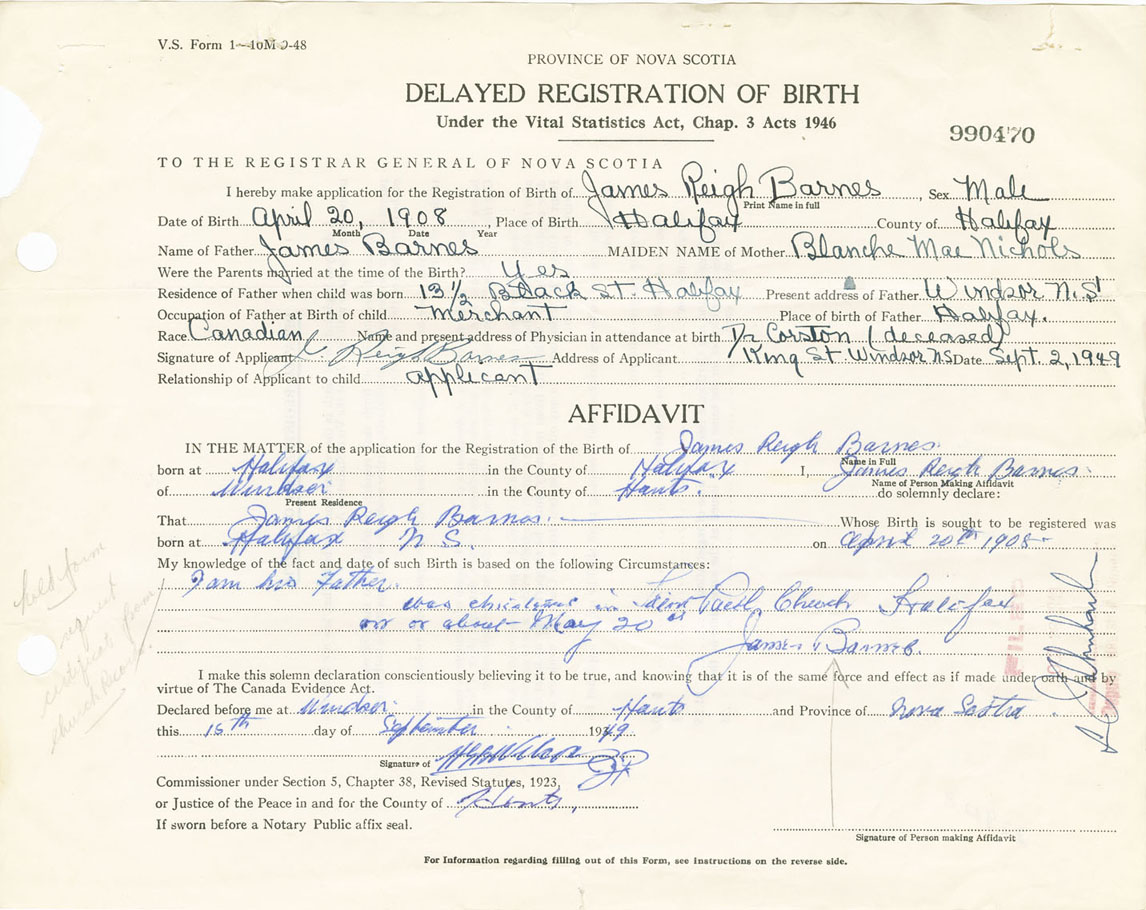 V.S. Form 1-10M 9-48
PROVINCE OF NOVA SCOTIA
DELAYED REGISTRATION OF BIRTH
Under the Vital Statistics Act, Chap. 3 Acts 1946
990470
TO THE REGISTRAR GENERAL OF NOVA SCOTIA
I hereby make application for the Registration of Birth of James Reigh Barnes, Sex Male
Print Name in full
Date of Birth April 20, 1908, Place of Birth Halifax County of Halifax
Month Date Year
Name of Father James Barnes MAIDEN NAME of Mother Blanche Mae Nichols
Were the Parents married at the time of the Birth? Yes
Residence of Father when child was born 13 1/2 Black St. Halifax Present address of Father Windsor N.S
Occupation of Father at Birth of child Merchant Place of birth of Father Halifax.
Race Canadian Name and present address of Physician in attendance at birth Dr Corston (deceased)
Signature of Applicant J Reigh Barnes Address of Applicant King St. Windsor NS Date Sept. 2, 1949
Relationship of Applicant to child applicant
AFFIDAVIT
IN THE MATTER of the application for the Registration of the Birth of James Reigh Barnes
Name in Full
born at Halifax in the County of Halifax I, James Reigh Barnes
Name of Person Making Affidavit
of Windsor in the County of Hants. do solemnly declare:
Present Residence
That James Reigh Barnes. Whose Birth is sought to be registered was
born at Halifax N S. on April 20th 1908
My knowledge of the fact and date of such Birth is based on the following Circumstances:
I am his Father.
was in Church Halifax
on or about May 20
James Barnes.
I make this solemn declaration conscientiously believing it to be true, and knowing that it is of the same force and effect as if made under oath and by
virtue of The Canada Evidence Act.
Declared before me at Windsor in the County of Hants and Province of Nova Scotia
this 15th day of September 1949
Signature of JP
Commissioner under Section 5, Chapter 38, Revised Statutes, 1923,
or Justice of the Peace in and for the County of Hants,
If sworn before a Notary Public affix seal.
Signature of Person making Affidavit
For Information regarding filling out of this Form, see instructions on the reverse side.